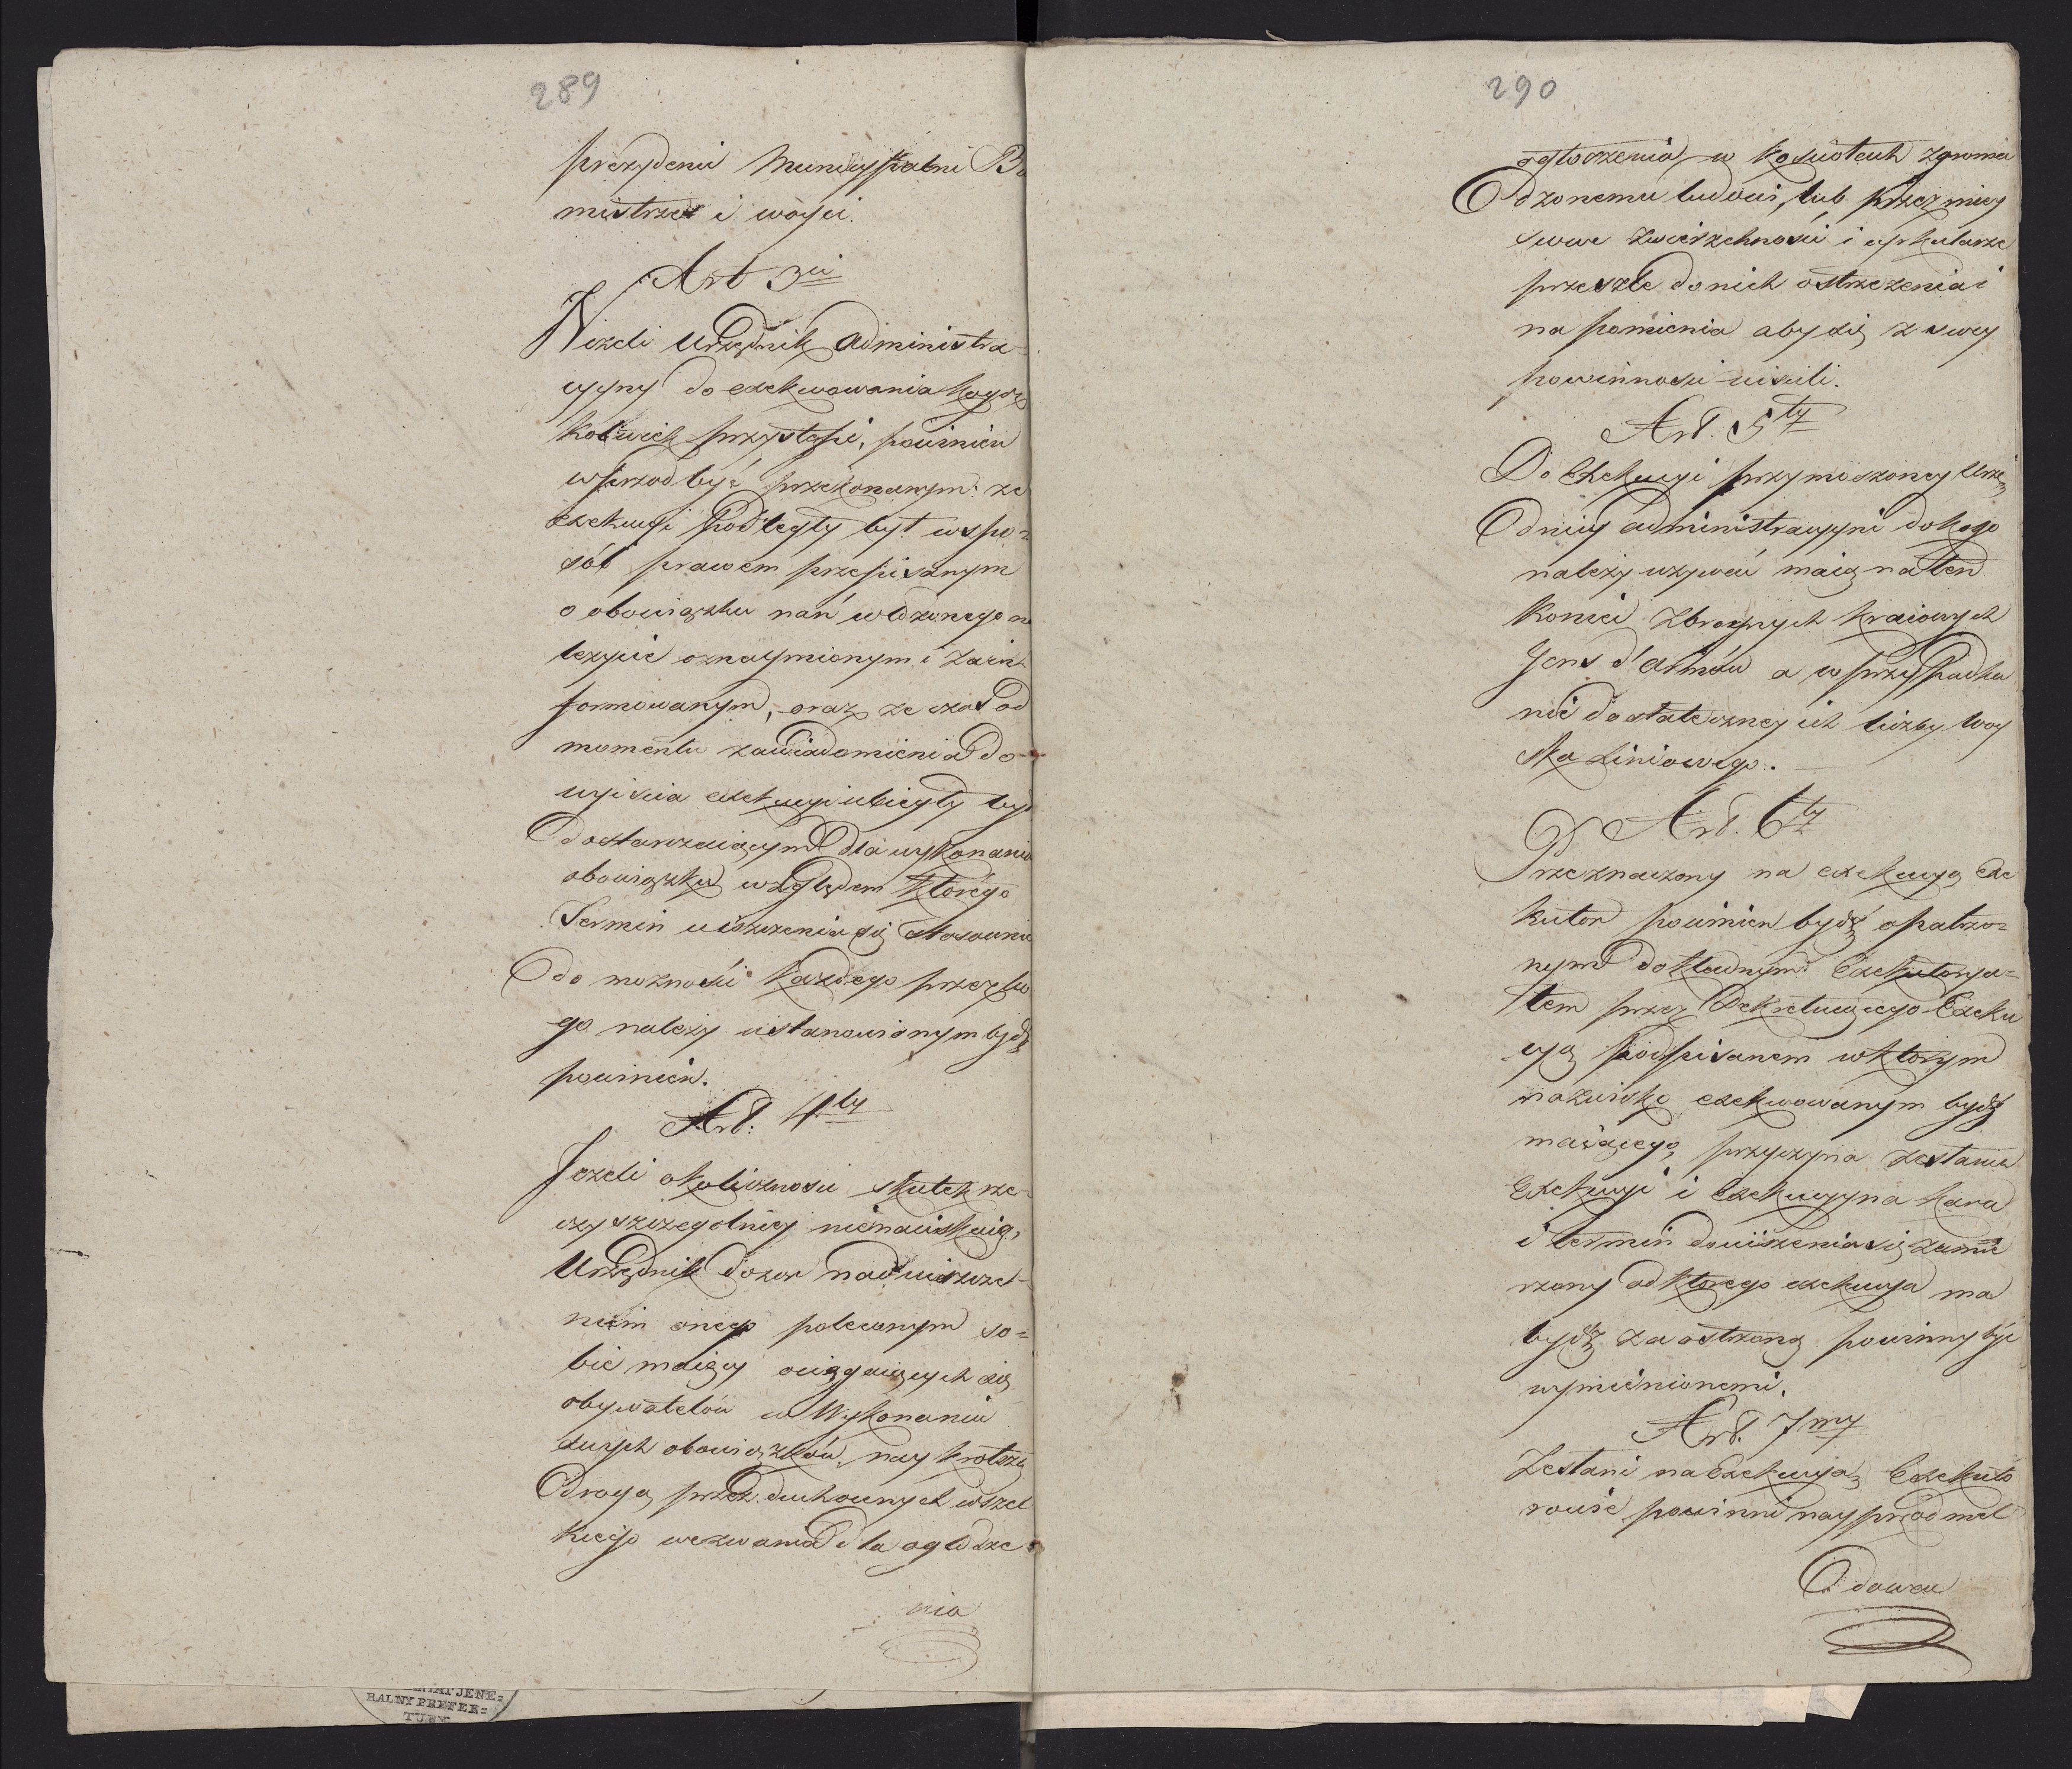 289
prezydenci Municypalni Bu
mistrze i woyci.
Art 3ci
Niżeli Urzędnik Administra-
cyyny do exekwowania kogoż
kolwiek przystąpi, powinien
wprzod być przekonanym: że
exekucyi podległy był w spo=
sób prawem przepisanym
o obowiązku nań włożonego na
leżycie oznaymionym i zain
formowanym, oraz że czas od
momentu zawiadomienia do
wyiscia exekucyi ubiegły był
dostarczaiącym dla wykonania
obowiązku względem którego
Termin uiszczenia się stosownie
do możności każdego przez ko
go należy ustanowionym bydź
powinien.
Art: 4ty
Jeżeli okoliczności skutek rze-
czy szczególniey nienaciskaią,
Urzędnik dozor nad uiszcze-
niem onego poleconym so=
bie maiący ociągaiących się
obywatelów w Wykonaniu
swych obowiązków, nay krotszą
drogą przez duchownych wszel
kiego wezwania dla ogłosze
nia
290
ogłoszenia w kościołach zgroma
dzonemu ludowi, lub przez miey
scowe zwierzchności i cyrkularze
przeszłe do nich ostrzeżenia i
napomienia aby się z swey
powinności uiścili.
Art. 5ty
Do Exekucyi przymoszoney Urzę
dnicy administracyyni do kogo
należy używać maią na ten
koniec zbroynych kraiowych
Gens d'armów a w przypadku
niedostateczney ich liczby woy
ska Liniowego.
Art. 6ty
Przeznaczony na exekucyą Exe
kutor powinien bydź opatrzo=
nym dokładnym Exekutorya=
łem przez Dekretuiącego Exeku
cyą podpisanem w którym
nazwisko exekwowanym bydź
maiącego, przyczyna zesłania
Exekucyi i exekucyyna kara
i termin do uiszczenia się zamie
rzony od którego exekucya ma
bydź zaostrzoną powinny być
wymienionemi.
Art. 7my
Zesłani na Exekucyą Exekuto
rowie powinni nayprzód mel
dować
RALNY PREFEK=
TURY